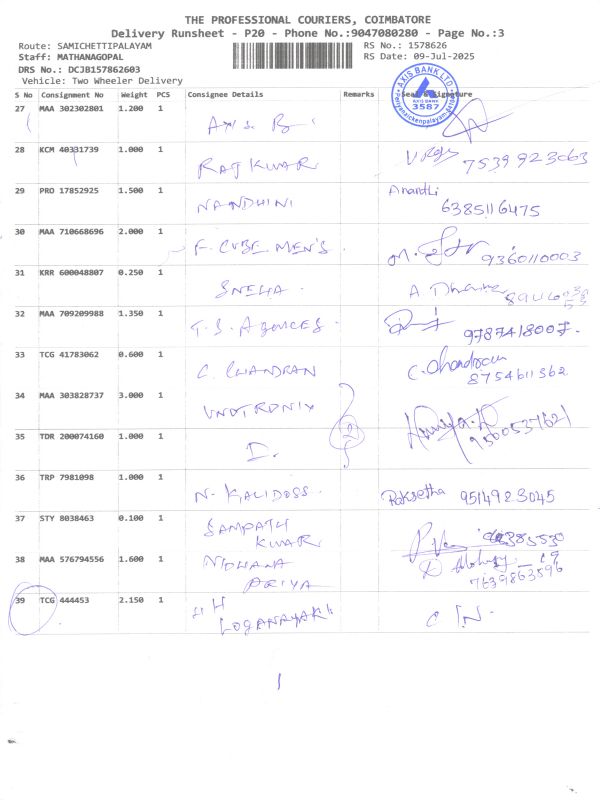 THE PROFESSIONAL COURIERS, COIMBATORE
Delivery Runsheet - P20 - Phone No.:9047080280 - Page No.:3
Route: SAMICHETTIPALAYAM RS No.: 1578626
Staff: MATHANAGOPAL RS Date: 09-Jul-2025
DRS No.: DCJB157862603
Vehicle: Two Wheeler Delivery
AXIS BANK LTD
AXIS BANK
3587
S No Consignment No Weight PCS Consignee Details Remarks Seal & Signature
27 MAA 302302801 1.200 1
28 KCM 40331739 1.000 1 RAJ KUMAR 7539923063
29 PRO 17852925 1.500 1 NANDHINI Anandhi
6385116475
30 MAA 710668696 2.000 1 F. CUBE MEN'S 9360110003
31 KRR 600048807 0.250 1 SNEHA A
32 MAA 709209988 1.350 1 T. S. AGENCES 9787418007
33 TCG 41783062 0.600 1 C. CHANDRAN C. Chandran
8754611362
34 MAA 303828737 3.000 1
35 TDR 200074160 1.000 1 I.
36 TRP 7981098 1.000 1 N. KALIDOSS Raksetha 9514923045
37 STY 8038463 0.100 1 SAMPATH
KUMAR
38 MAA 576794556 1.600 1
PRIYA 7639863596
39 TCG 444453 2.150 1
LOGANAYAKI